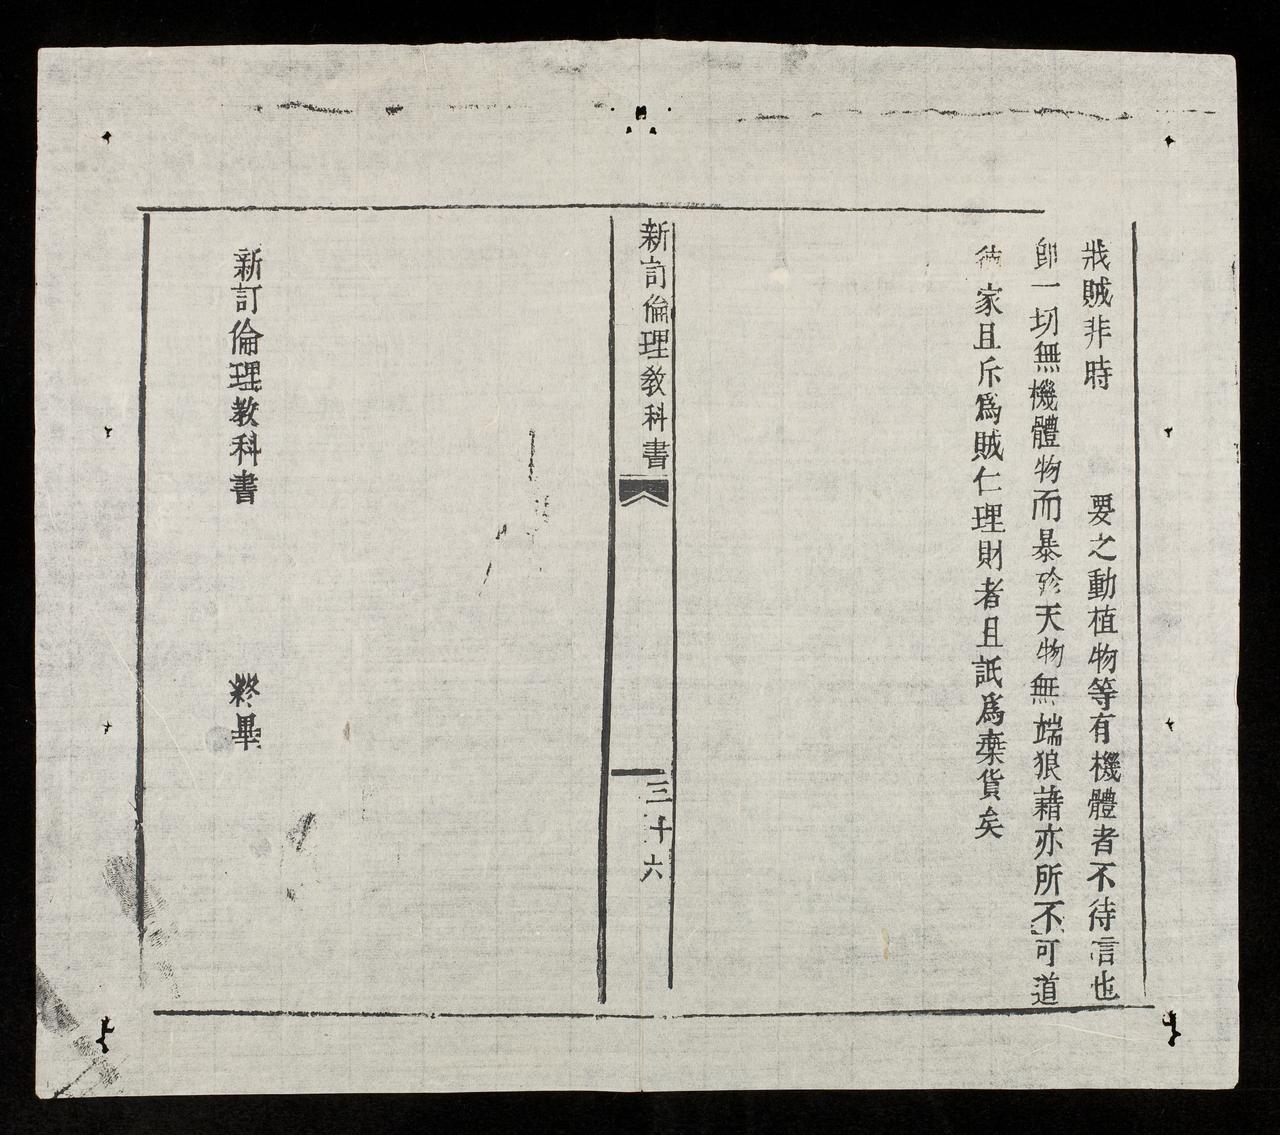 戕賊非時 要之動植物等有機體者不待言也
卽一切無機體物而暴殄天物無端狼藉亦所不可道
德家且斥爲賊仁理財者且詆爲棄貨矣
新訂倫理敎科書
三十六
新訂倫理敎科書 終畢